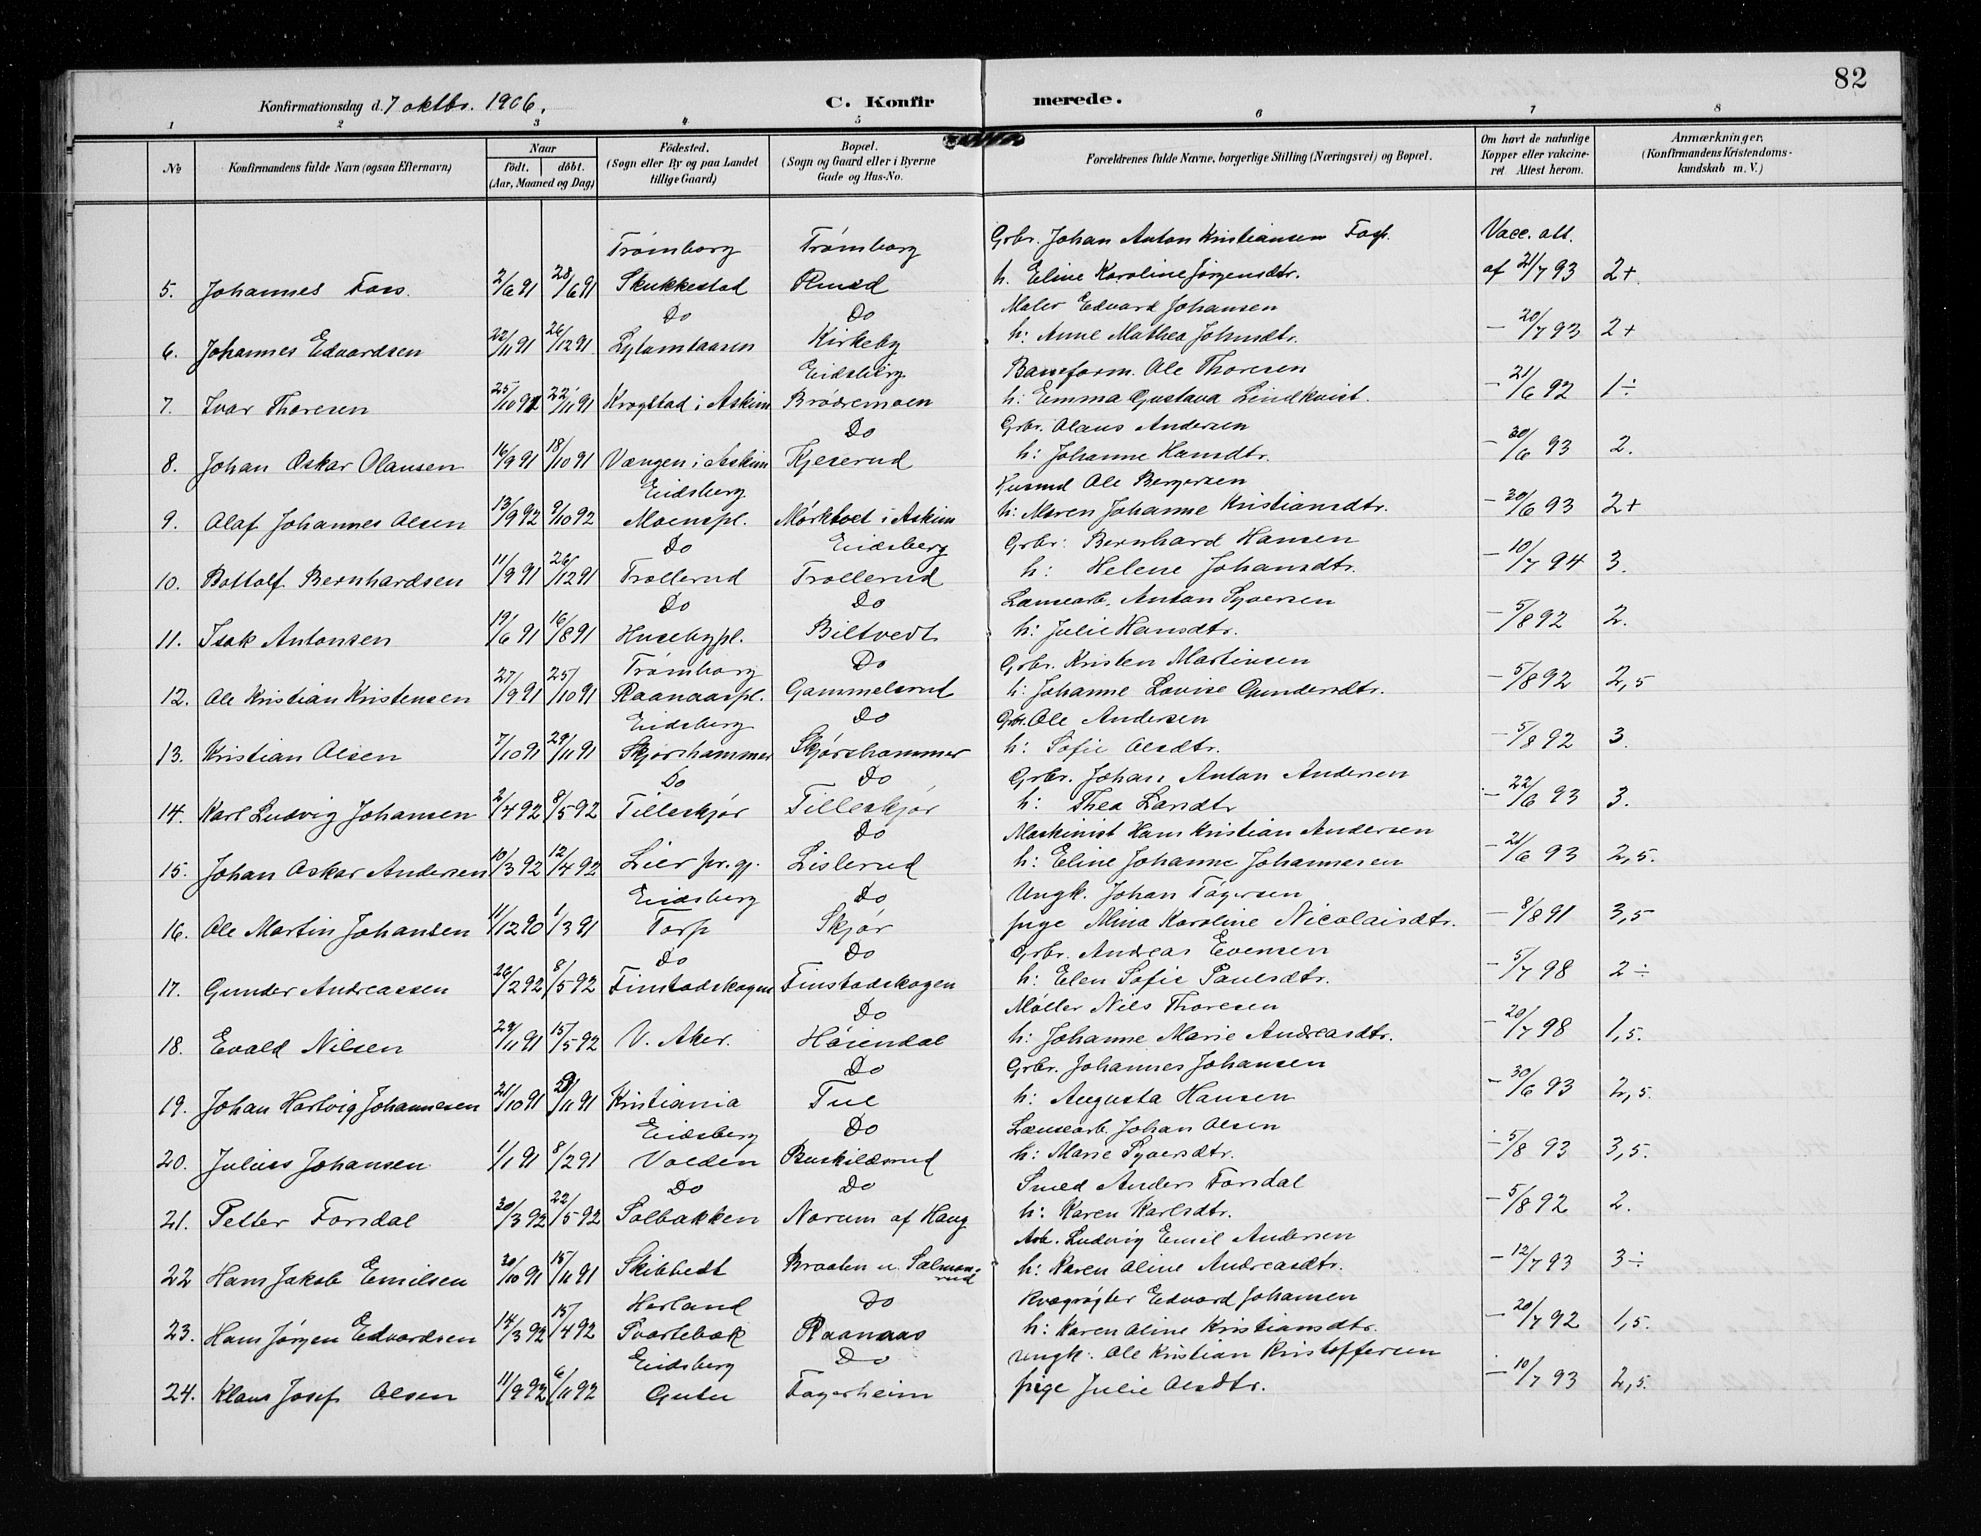 82
Konfirmationsdag d. 7 oktbr. 1906.
C. Konfir merede.
1 2 3 4 5 6 7 8
No
Konfirmandens fulde Navn (ogsaa Efternavn)
Naar
født. døbt.
(Aar, Maaned og Dag)
Fødested.
(Sogn eller By og paa Landet
tillige Gaard)
Bopæl.
(Sogn og Gaard eller i Byerne
Gade og Hus-No.
Forældrenes fulde Navne, borgerlige Stilling (Næringsvei) og Bopæl.
Om havt de naturlige
Kopper eller vakcine-
ret Attest herom.
Anmærkninger,
(Konfirmandens Kristendoms-
kundskab m. V.)
Trømborg Trømborg Grbr. Johan Anton Kristiansen Foss. Vacc. att.
5. Johannes Foss. 2/6 91 28/6 91 Skukkestad Ruud h. Eline Karoline Jørgensdtr. af 21/7 93 2+
Do Do Maler Edvard Johansen
6. Johannes Edvardsen 22/11 91 26/12 91 Kirkeby h: Anne Mathea Johnsdtr. – 20/7 93 2+
Eidsberg Ole Thoresen
7. Ivar Thoresen 25/10 91 22/11 91 Krogstad i Askim Brødremoen h: Emma Gustava Lindkvist. – 21/6 92 1÷
Do Grbr. Olaus Andersen
8. Johan Oskar Olausen 16/9 91 18/10 91 Vængen i Askim Kjeserud h: Johanne Hansdtr. – 30/6 93 2.
Eidsberg Husmd Ole Bergersen
9. Olaf Johannes Olsen 13/9 92 9/10 92 Moenspl. Mørktvet i Askim h: Maren Johanne Kristiansdtr. – 30/6 93 2+
Do Eidsberg Grbr: Bernhard Hansen
10. Bottolf Bernhardsen 11/9 91 26/12 91 Trollerud Trollerud h: Helene Johansdtr. – 10/7 94 3.
Do Do Lænsearb. Anton Syversen
11. Isak Antonsen 19/6 91 16/8 91 Husebypl. Biltvedt h: Julie Hansdtr. – 5/8 92 2.
Trømborg Do Grbr. Kristen Martinsen
12. Ole Kristian Kristensen 27/9 91 25/10 91 Raanaaspl. Gammelsrud h: Johanne Lovise Gundersdtr. – 5/8 92 2,5
Eidsberg Do Grbr. Ole Andersen
13. Kristian Olsen 7/10 91 29/11 91 Skjørshammer Skjørshammer h: Sofie Olsdtr. – 5/8 92 3.
Do Do Grbr. Johan Anton Andersen
14. Karl Ludvig Johansen 2/4 92 8/5 92 Tilleskjør Tilleskjør h: Thea Larsdtr – 22/6 93 3.
Do Maskinist Hans Kristian Andersen
15. Johan Oskar Andersen 10/3 92 12/4 92 Lier pr.gj. Lislerud h: Eline Johanne Johannesen – 21/6 93 2,5.
Eidsberg Do Ungk. Johan Tøgersen
16. Ole Martin Johansen 11/12 90 1/3 91 Torp Skjør pige Mina Karoline Nicolaisdtr. – 8/8 91 3,5
Do Do Grbr. Andreas Evensen
17. Gunder Andreassen 26/2 92 8/5 92 Finstadskogen Finstadskogen h: Elen Sofie Paulsdtr. – 5/7 98 2÷
Do Møller Nils Thoresen
18. Evald Nilsen 23/11 91 15/5 92 V. Aker. Høiendal h: Johanne Marie Andreasdtr. – 20/7 98 1,5.
Do Grbr. Johannes Johansen
19. Johan Hartvig Johannesen 21/10 91 29/11 91 Kristiania Tue h: Augusta Hansen – 30/6 93 2,5.
Eidsberg Do Lænsearb. Johan Olsen
20. Julius Johansen 1/1 91 8/2 91 Volden Buskildsrud h: Marie Syversdtr. – 5/8 93 3,5.
Do Do Smed Anders Forsdal
21. Petter Forsdal 20/3 92 22/5 92 Solbakken Norum af Haug h: Karen Karlsdtr. – 5/8 92 2.
Arb. Ludvig Emil Andersen
22 Hans Jakob Emilsen 20/10 91 15/11 91 Skibtvedt Braaten u. Salmonrud h: Karen Oline Andreasdtr. – 12/7 93 3÷
Hærland Do Kvægrøgter Edvard Johansen
23. Hans Jørgen Edvardsen 14/3 92 15/4 92 Svartebæk Raanaas h: Karen Oline Kristiansdtr. – 20/7 92 1,5.
Eidsberg Do Ungk. Ole Kristian Kristoffersen
24. Klaus Josef Olsen 11/9 92 6/11 92 Guten Fagerheim pige Julie Olsdtr. – 10/7 93 2,5.